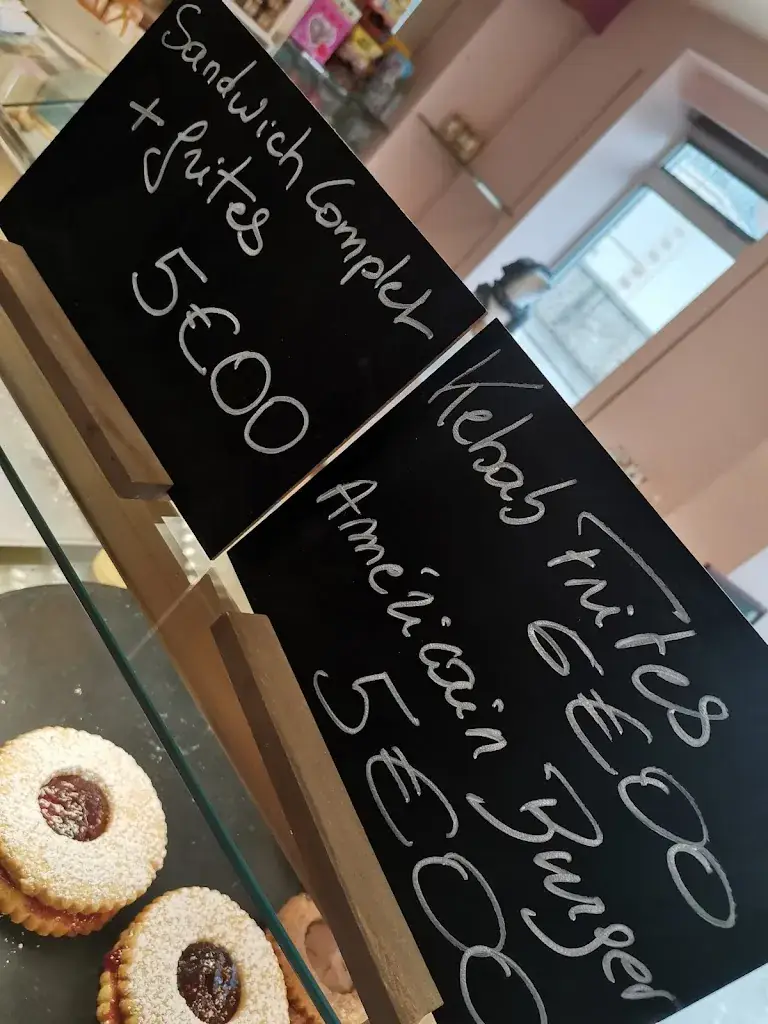 Sandwich Complet
+ frites
5€00
Kebab Frites
6€00
Américain Burger
5€00